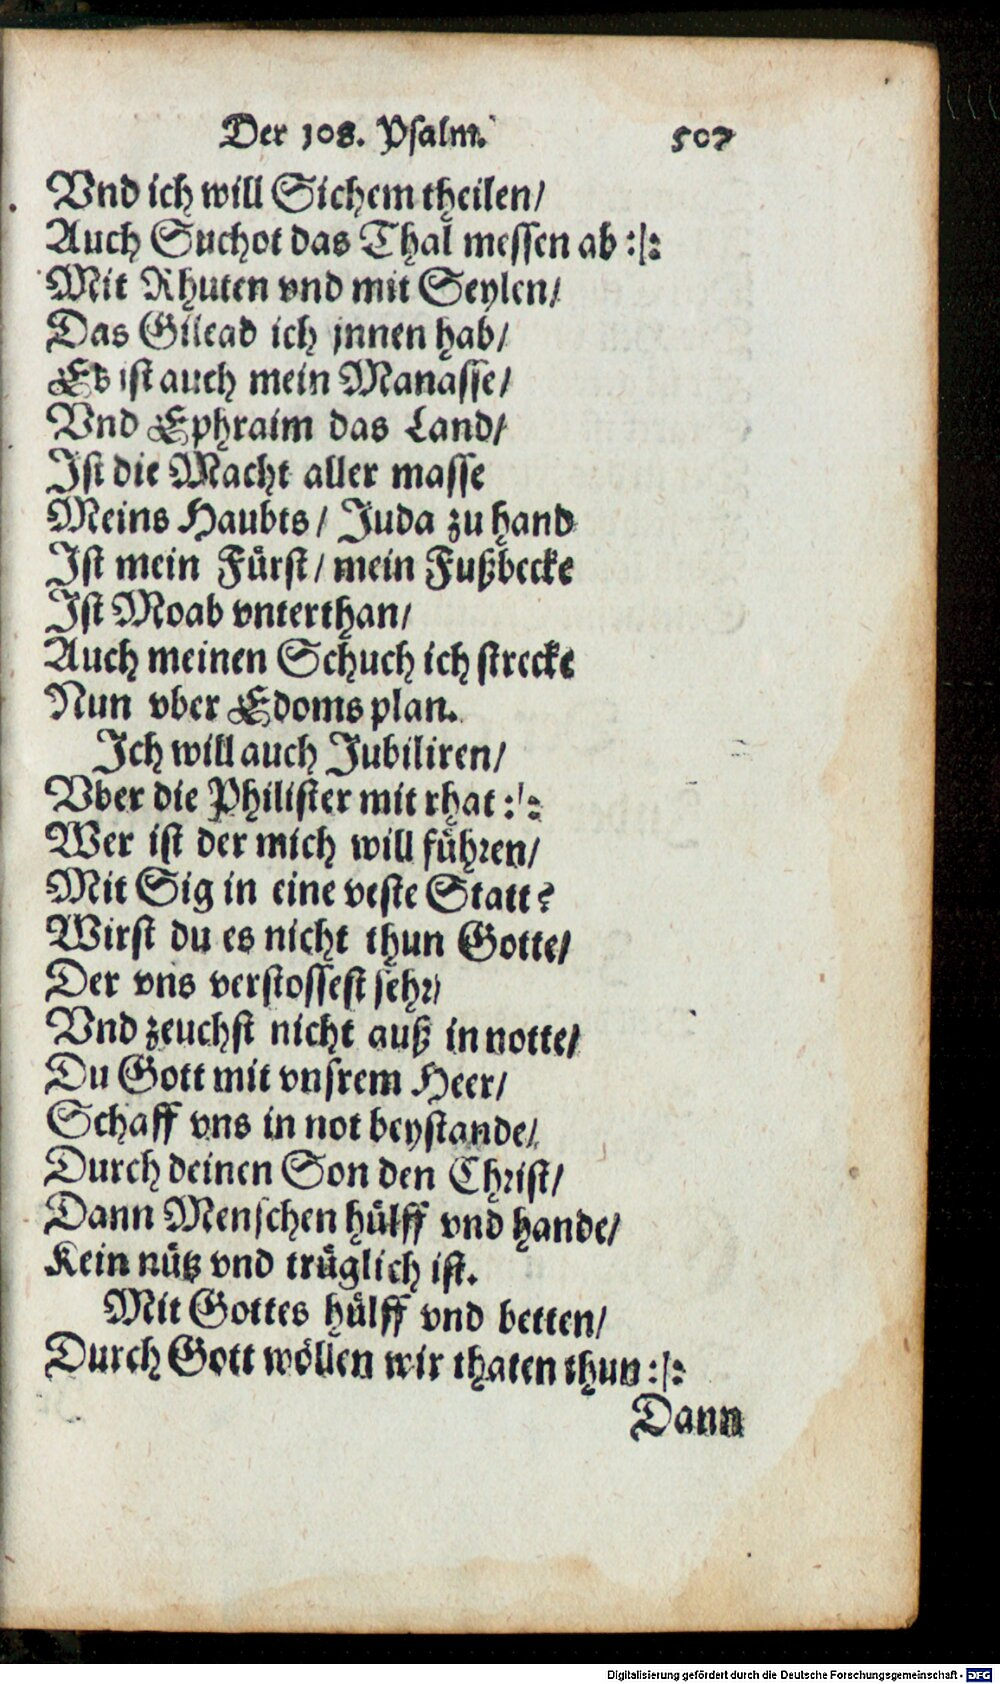 Der 108. Psalm. 507
Vnd ich will Sichem theilen/
Auch Suchot das Thal messen ab :|:
Mit Rhuten vnd mit Seylen/
Das Gilead ich jnnen hab/
Es ist auch mein Manasse/
Vnd Ephraim das Land/
Ist die Macht aller masse
Meins Haubts/ Juda zu hand
Ist mein Fürst/ mein Fußbecke
Ist Moab vnterthan/
Auch meinen Schuch ich strecke
Nun vber Edoms plan.
Ich will auch Jubiliren/
Vber die Philister mit rhat :|:
Wer ist der mich will führen/
Mit Sig in eine veste Statt?
Wirst du es nicht thun Gotte/
Der vns verstossest sehr/
Vnd zeuchst nicht auß in notte/
Du Gott mit vnsrem Heer/
Schaff vns in not beystande/
Durch deinen Son den Christ/
Dann Menschen hülff vnd hande/
Kein nütz vnd trüglich ist.
Mit Gottes hülff vnd betten/
Durch Gott wöllen wir thaten thun :|:
Dann
Digitalisierung gefördert durch die Deutsche Forschungsgemeinschaft - DFG